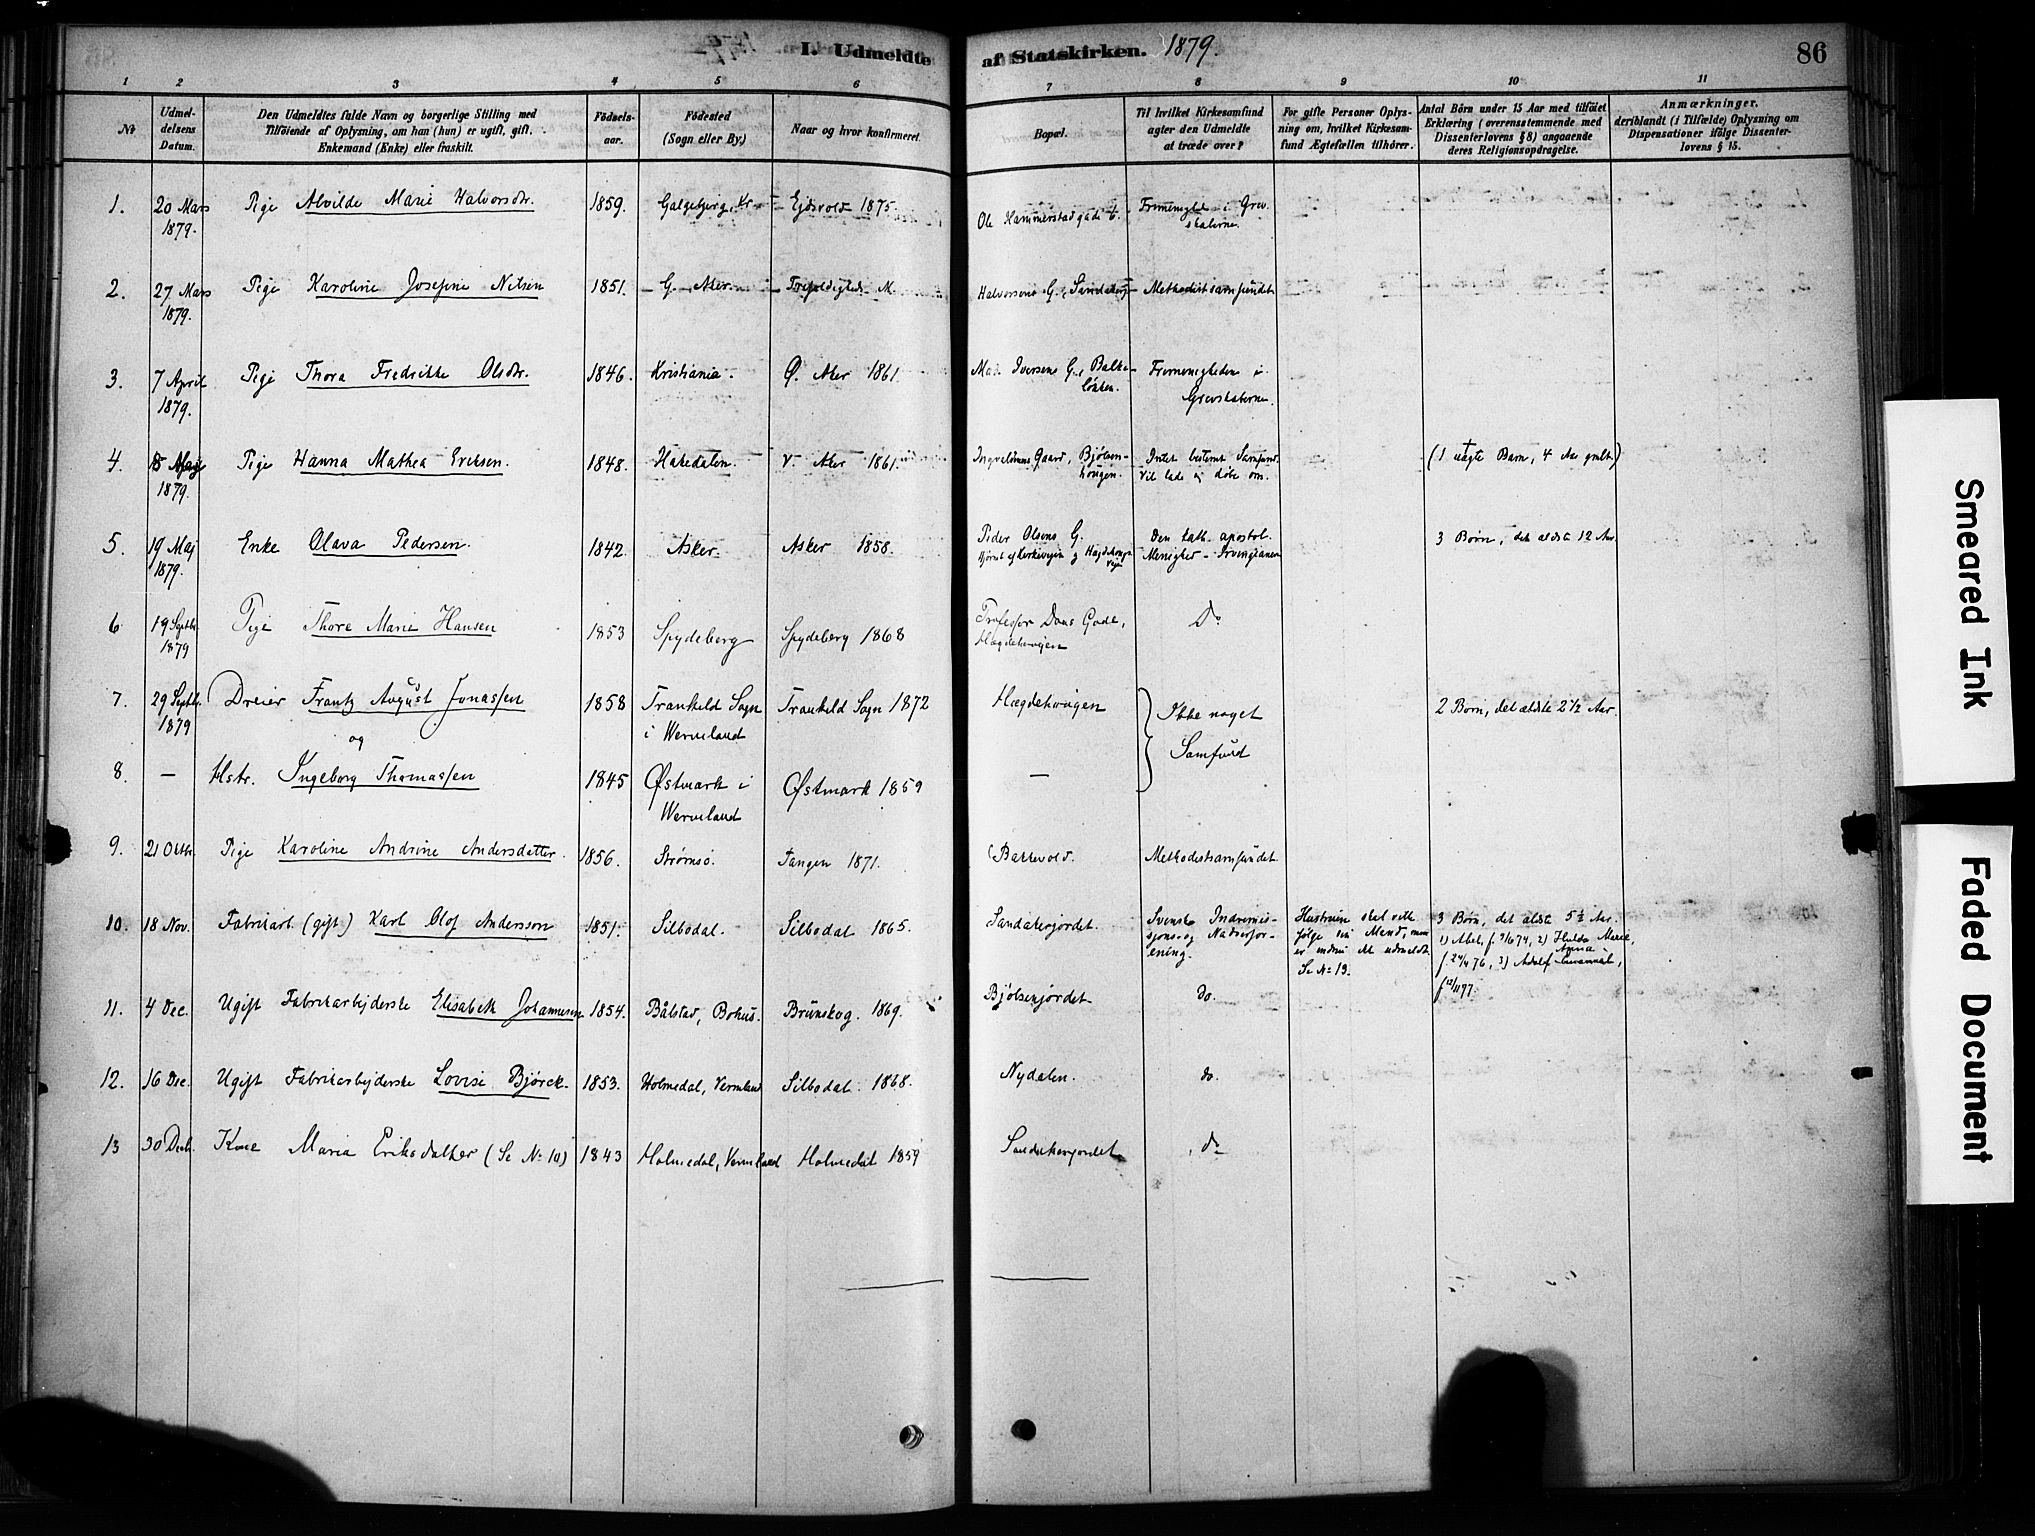 I. Udmeldte af Statskirken. 1879.
86
1 2 3 4 5 6 7 8 9 10 11
No
Udmel-
delsens
Datum.
Den Udmeldtes fulde Navn og borgerlige Stilling med
Tilföiende af Oplysning, om han (hun) er ugift, gift,
Enkemand (Enke) eller fraskilt.
Födsels-
aar.
Födested
(Sogn eller By.)
Naar og hvor konfirmeret.
Bopæl.
Til hvilket Kirkesamfund
agter den Udmeldte
at træde over?
For gifte Personer Oplys-
ning om, hvilket Kirkesam-
fund Ægtefællen tilhörer.
Antal Börn under 15 Aar med tilföiet
Erklæring (overensstemmende med
Dissenterlovens § 8) angaaende
deres Religionsopdragelse.
Anmærkninger,
deriblandt (i Tilfælde) Oplysning om
Dispensationer ifölge Dissenter-
lovens § 15.
1. 20 Mars Pige Alvilde Marie Halvorsdr. 1859. Galgebjerg, Kr. Ejdsvold 1875. Ole Hammerstadgade 6. Frimenighed i Grev-
1879. skaberne.
2. 27 Mars Pige Karoline Josefine Nilsen 1851. G. Aker. Trefoldigheds M. Halvorsens G., Sandaker Methodistsamfundet
1879.
3. 7 April Pige Thora Fredrikke Olsdr. 1846. Kristiania. Ø. Aker 1861. Mad. Iversens G., Balke- Frimenigheden i
1879. løkken. Grevskaberne.
4. Maj Pige Hanna Mathea Eriksen. 1848. Hakedalen. V. Aker 1861. Gaard, Bjølsen- Intet bestemt Samfund. (1 uægte Barn, 4 Aar gmlt.)
1879. haugen. Vil lade sig døbe om.
5. 19 Maj Enke Olava Pedersen. 1842. Asker. Asker 1858. Peder Olsens G. Den kath. apostol. 3 Børn, det ældste 12 Aar.
1879. Hjørnet af Kirkeveien og Hægdehaugs- Menighed - Irvingianer
Vejen
6 19 Septbr. Pige Thora Marie Hansen 1853 Spydeberg Spydeberg 1868 Professor Daas Gade, Do
1879 Hægdehaugen
7. 29 Septbr. Dreier Frantz August Jonassen 1858 Trankild Sogn Trankild Sogn 1872 Hægdehaugen Ikke noget 2 Børn, det ældste 2 1/2 Aar.
1879 og i Wermeland Samfund
8. — Hstr. Ingeborg Thomassen 1845 Østmark i Østmark 1859 —
Wermeland
9. 21 Oktbr. Pige Karoline Andrine Andersdatter. 1856. Strømsø. Tangen 1871. Bakkevold. Methodistsamfundet.
10. 18 Nov. Fabrikarb. (gift) Karl Olof Andersson 1851. Silbodal. Silbodal 1865. Sandakerjordet. Svenske Indremis- Hustruen skal ville 3 Børn, det ældste 5 1/2 Aar.
sjons- og Nadverfor- følge sin Mand, men 1) Abel, f. 3/6 74, 2) Hulda Marie
ening. er endnu ikke udmeldt. Anna
Se No 13. f. 24/4 76, 3) Adolf Emanuel,
f. 12/11 77.
11. 4 Dec. Ugift Fabrikarbejderske Elisabeth Johannesen 1854. Bålstad, Bohus. Brunskog. 1869. Bjølsenjordet do.
12. 16 Dec. Ugift Fabrikarbejderske Lovise Bjørck. 1853. Holmedal, Vermland Silbodal. 1868. Nydalen. do.
13 30 Decb. Kone Maria Eriksdatter (Se No 10) 1843 Holmedal, Vermland Holmedal 1859 Sandakerjordet do
Smeared Ink
Faded Document